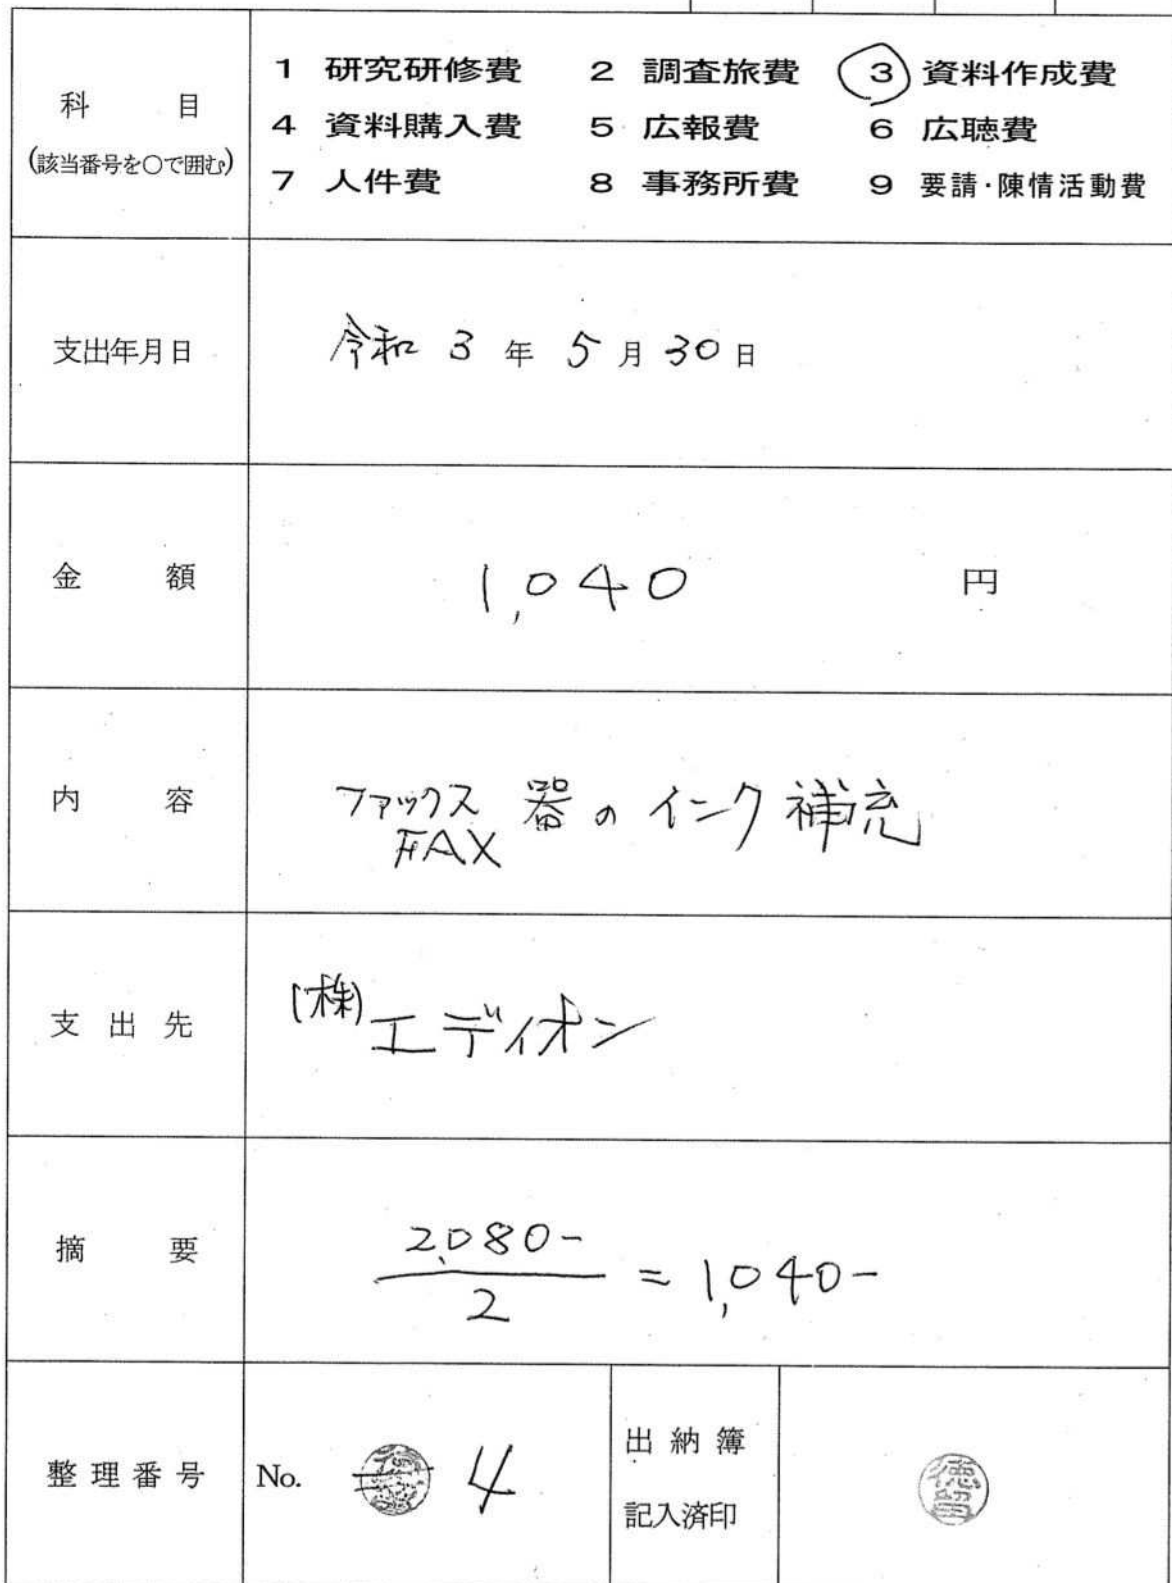 科 目
(該当番号を○で囲む)
1 研究研修費 2 調査旅費 3 資料作成費
4 資料購入費 5 広報費 6 広聴費
7 人件費 8 事務所費 9 要請・陳情活動費
支出年月日
令和 3 年 5 月 30 日
金 額
1,040 円
内 容
ファックス 器 の インク 補充
FAX
支 出 先
(株) エディオン
摘 要
2,080-
2
= 1,040-
整 理 番 号
No. 4
出 納 簿
記入済印